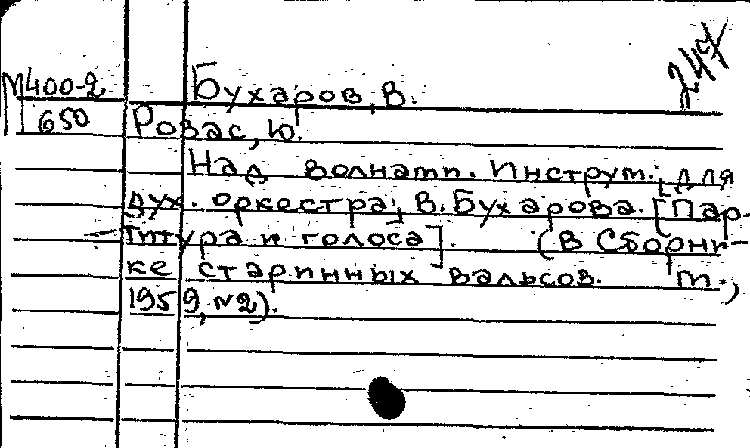 247
М400-2 Бухаров, В.
650 Розас, Ю.
Над волнами. Инструм. для
дух. оркестра, В. Бухарова. [Пар-
титура и голоса]. (В Сборни-
ке старинных вальсов. М.,
1959, №2).